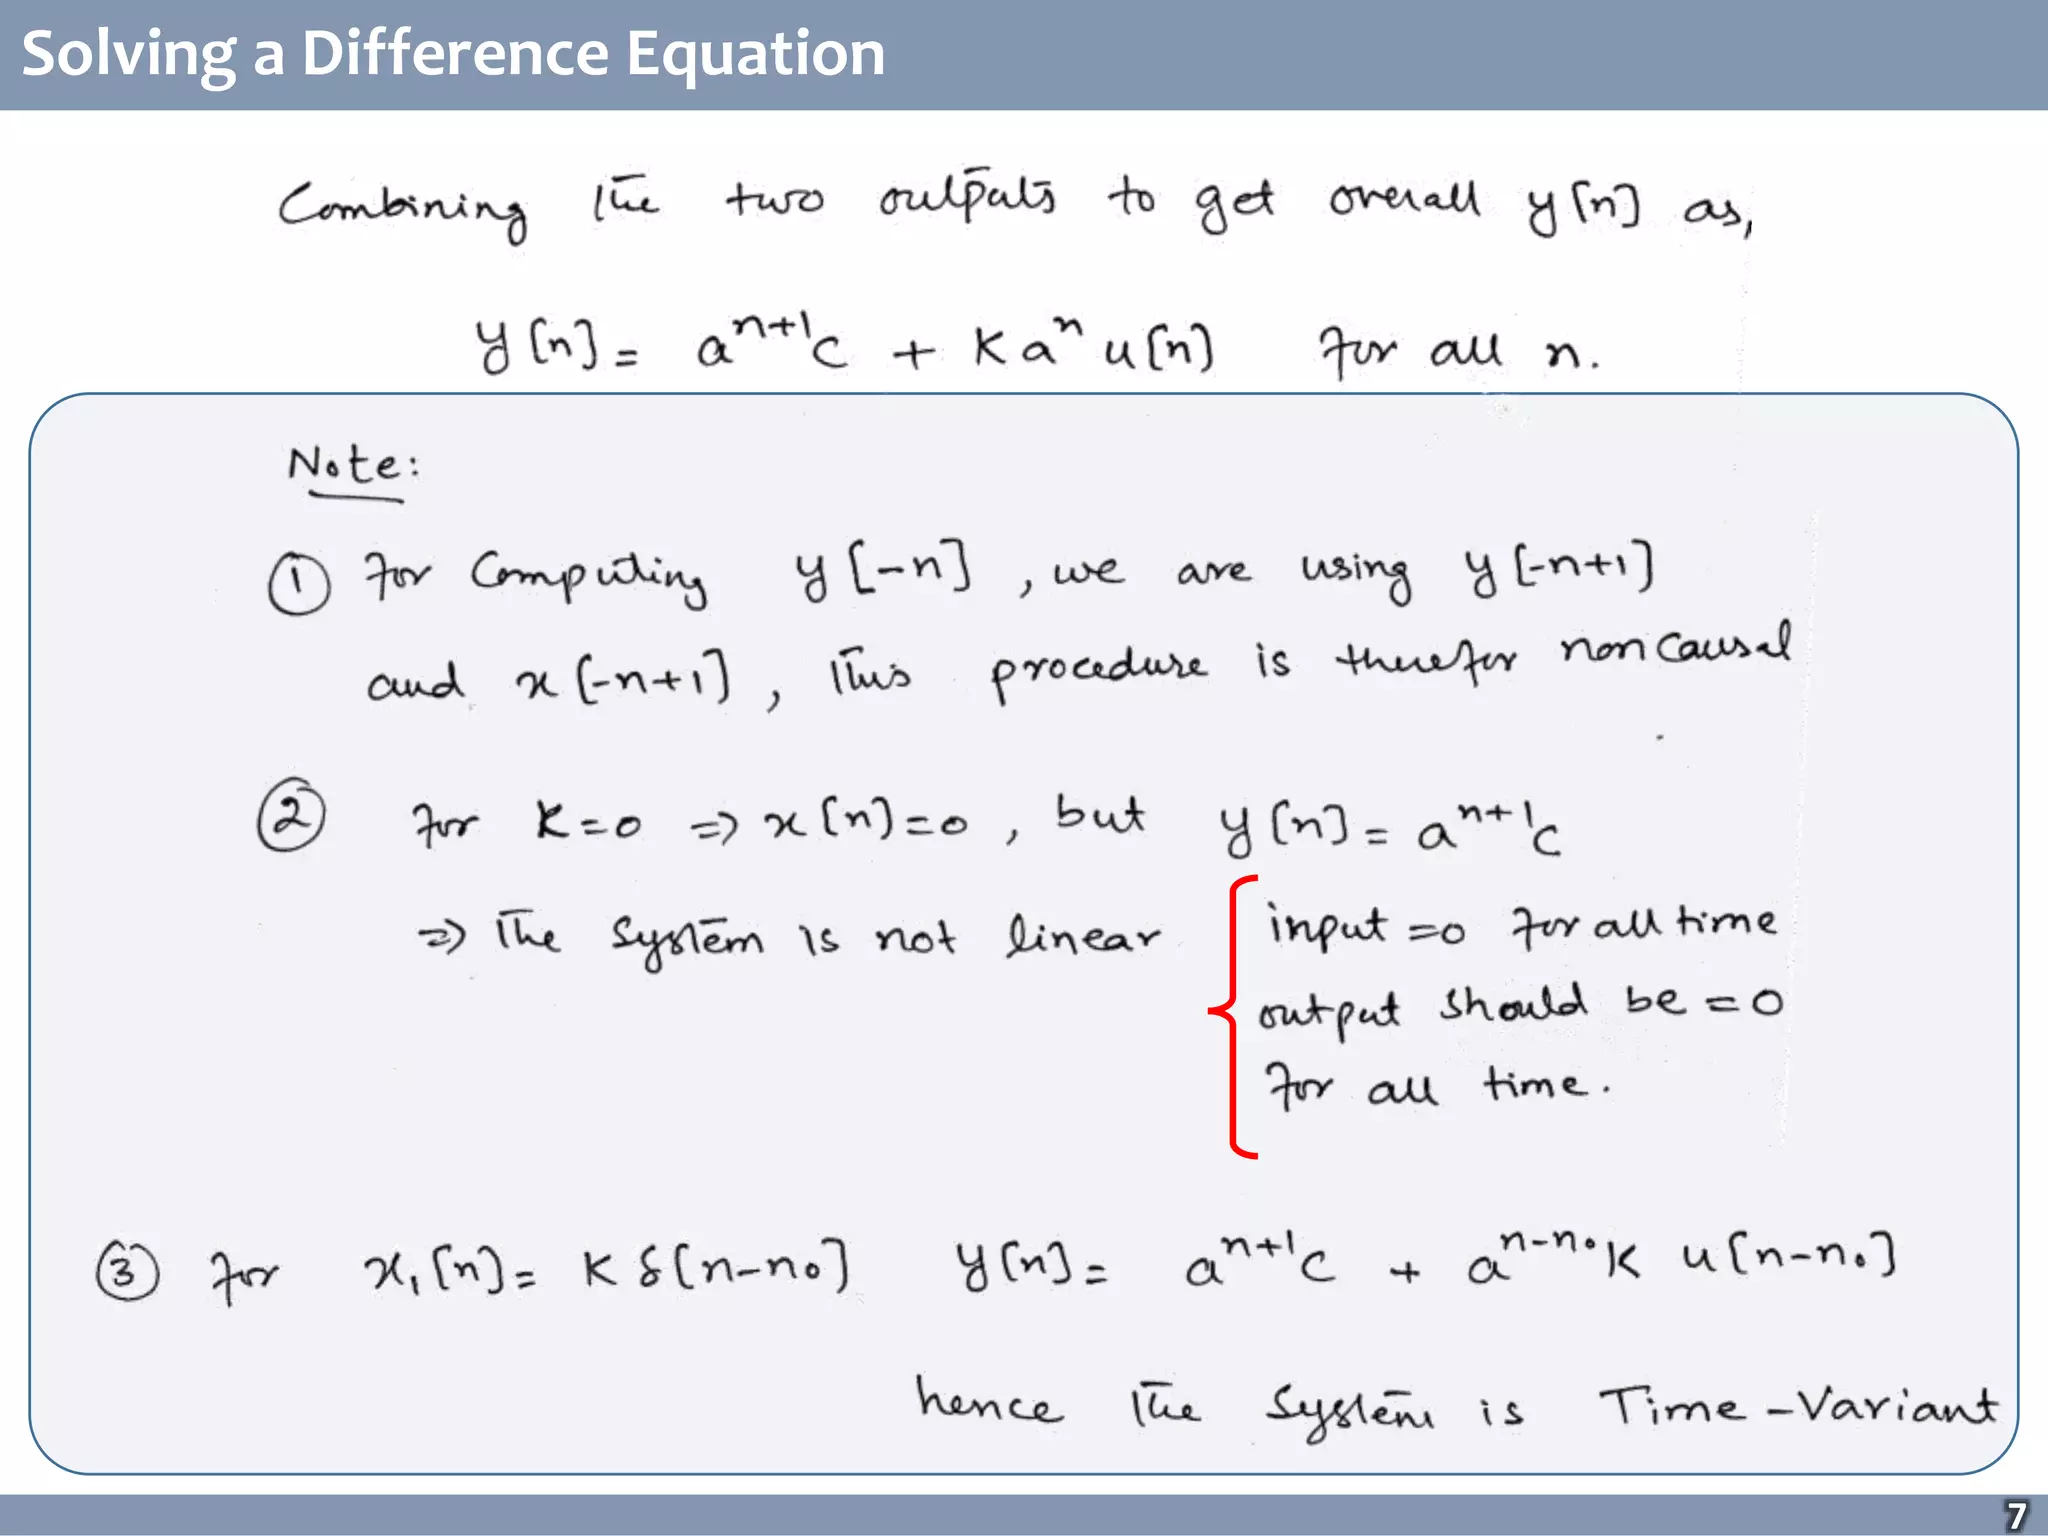 Solving a Difference Equation
Combining the two outputs to get overall y[n] as,
y[n] = aⁿ⁺¹c + Kaⁿu[n] for all n.
Note:
① for computing y[-n], we are using y[-n+1]
and x[-n+1], this procedure is therefor noncausal
② for K=0 ⇒ x[n]=0, but y[n] = aⁿ⁺¹c
⇒ The system is not linear
input =0 for all time
output should be =0
for all time.
③ for x₁[n] = Kδ[n-n₀] y[n] = aⁿ⁺¹c + aⁿ⁻ⁿ₀K u[n-n₀]
hence the system is Time-Variant
7